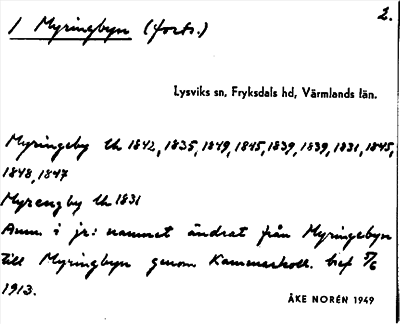 2.
/ Myringbyn (forts.)
Lysviks sn, Fryksdals hd, Värmlands län.
Myringeby Lh 1842, 1835, 1849, 1845, 1839, 1839, 1831, 1845,
1848, 1847
Myrengby Lh 1831
Anm. i jr: namnet ändrat från Myringebyn
till Myringbyn genom Kammarkoll. bref 5/6
1913.
ÅKE NORÉN 1949